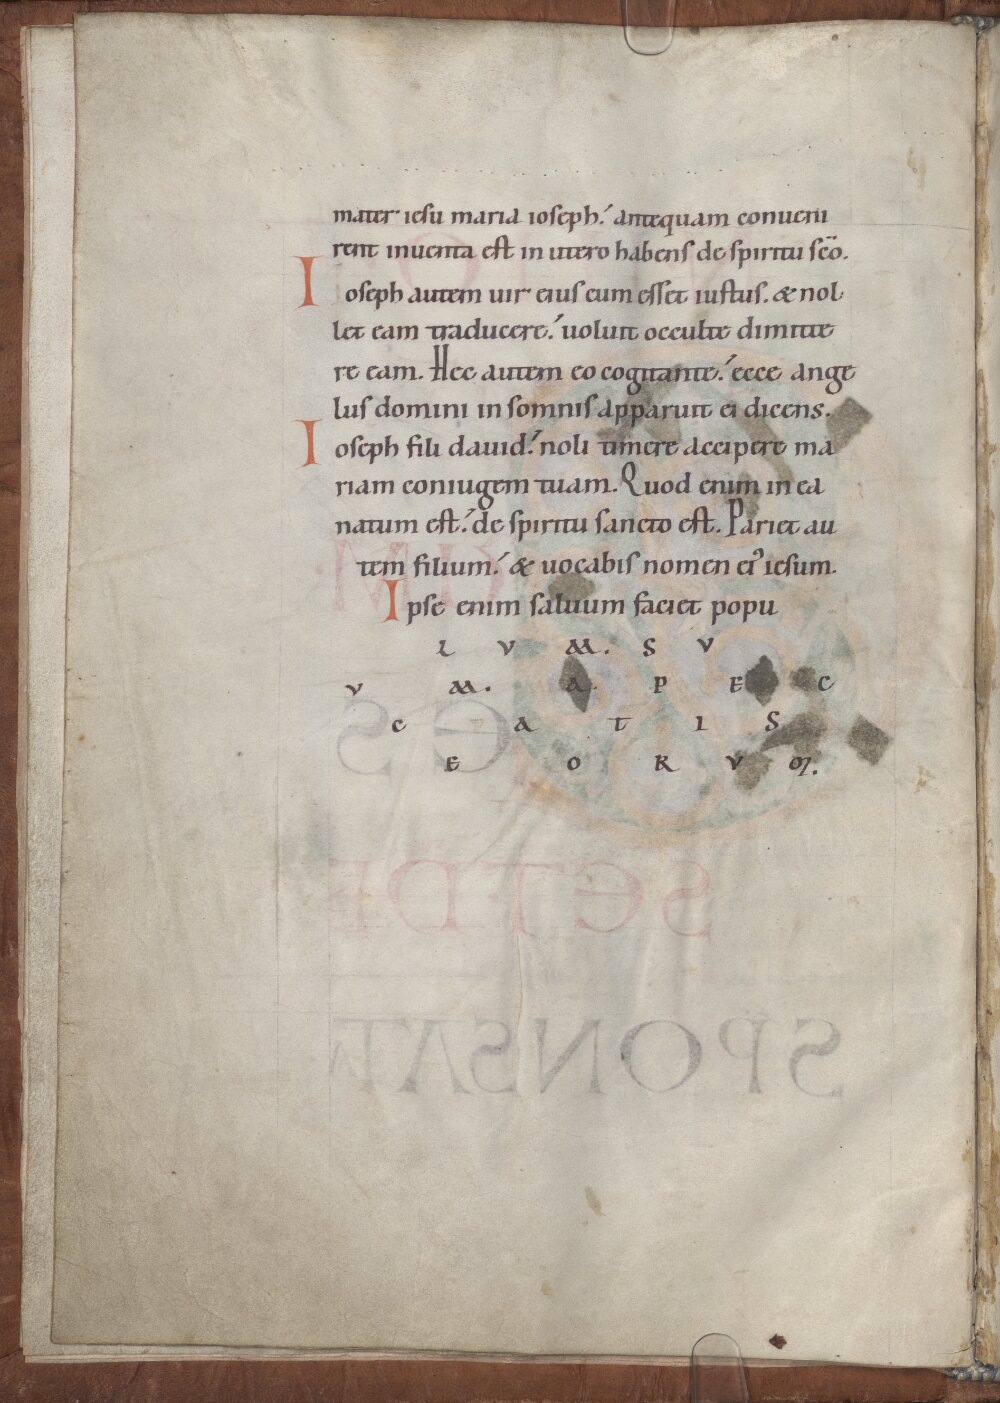 mater iesu maria ioseph. antequam conueni
rent inuenta est in utero habens de spiritu sc̄o.
Ioseph autem uir eius cum esset iustus. & nol
let eam traducere. uoluit occulte dimitte
re eam. Hec autem eo cogitante. ecce ange
lus domini in somnis apparuit ei dicens.
Ioseph fili dauid. noli timere accipere ma
riam coniugem tuam. Quod enim in ea
natum est. de spiritu sancto est. Pariet au
tem filium. & uocabis nomen ei' iesum.
Ipse enim saluum faciet popu
L V M. S V
V M. A P E C
C A T I S
E O R V M.